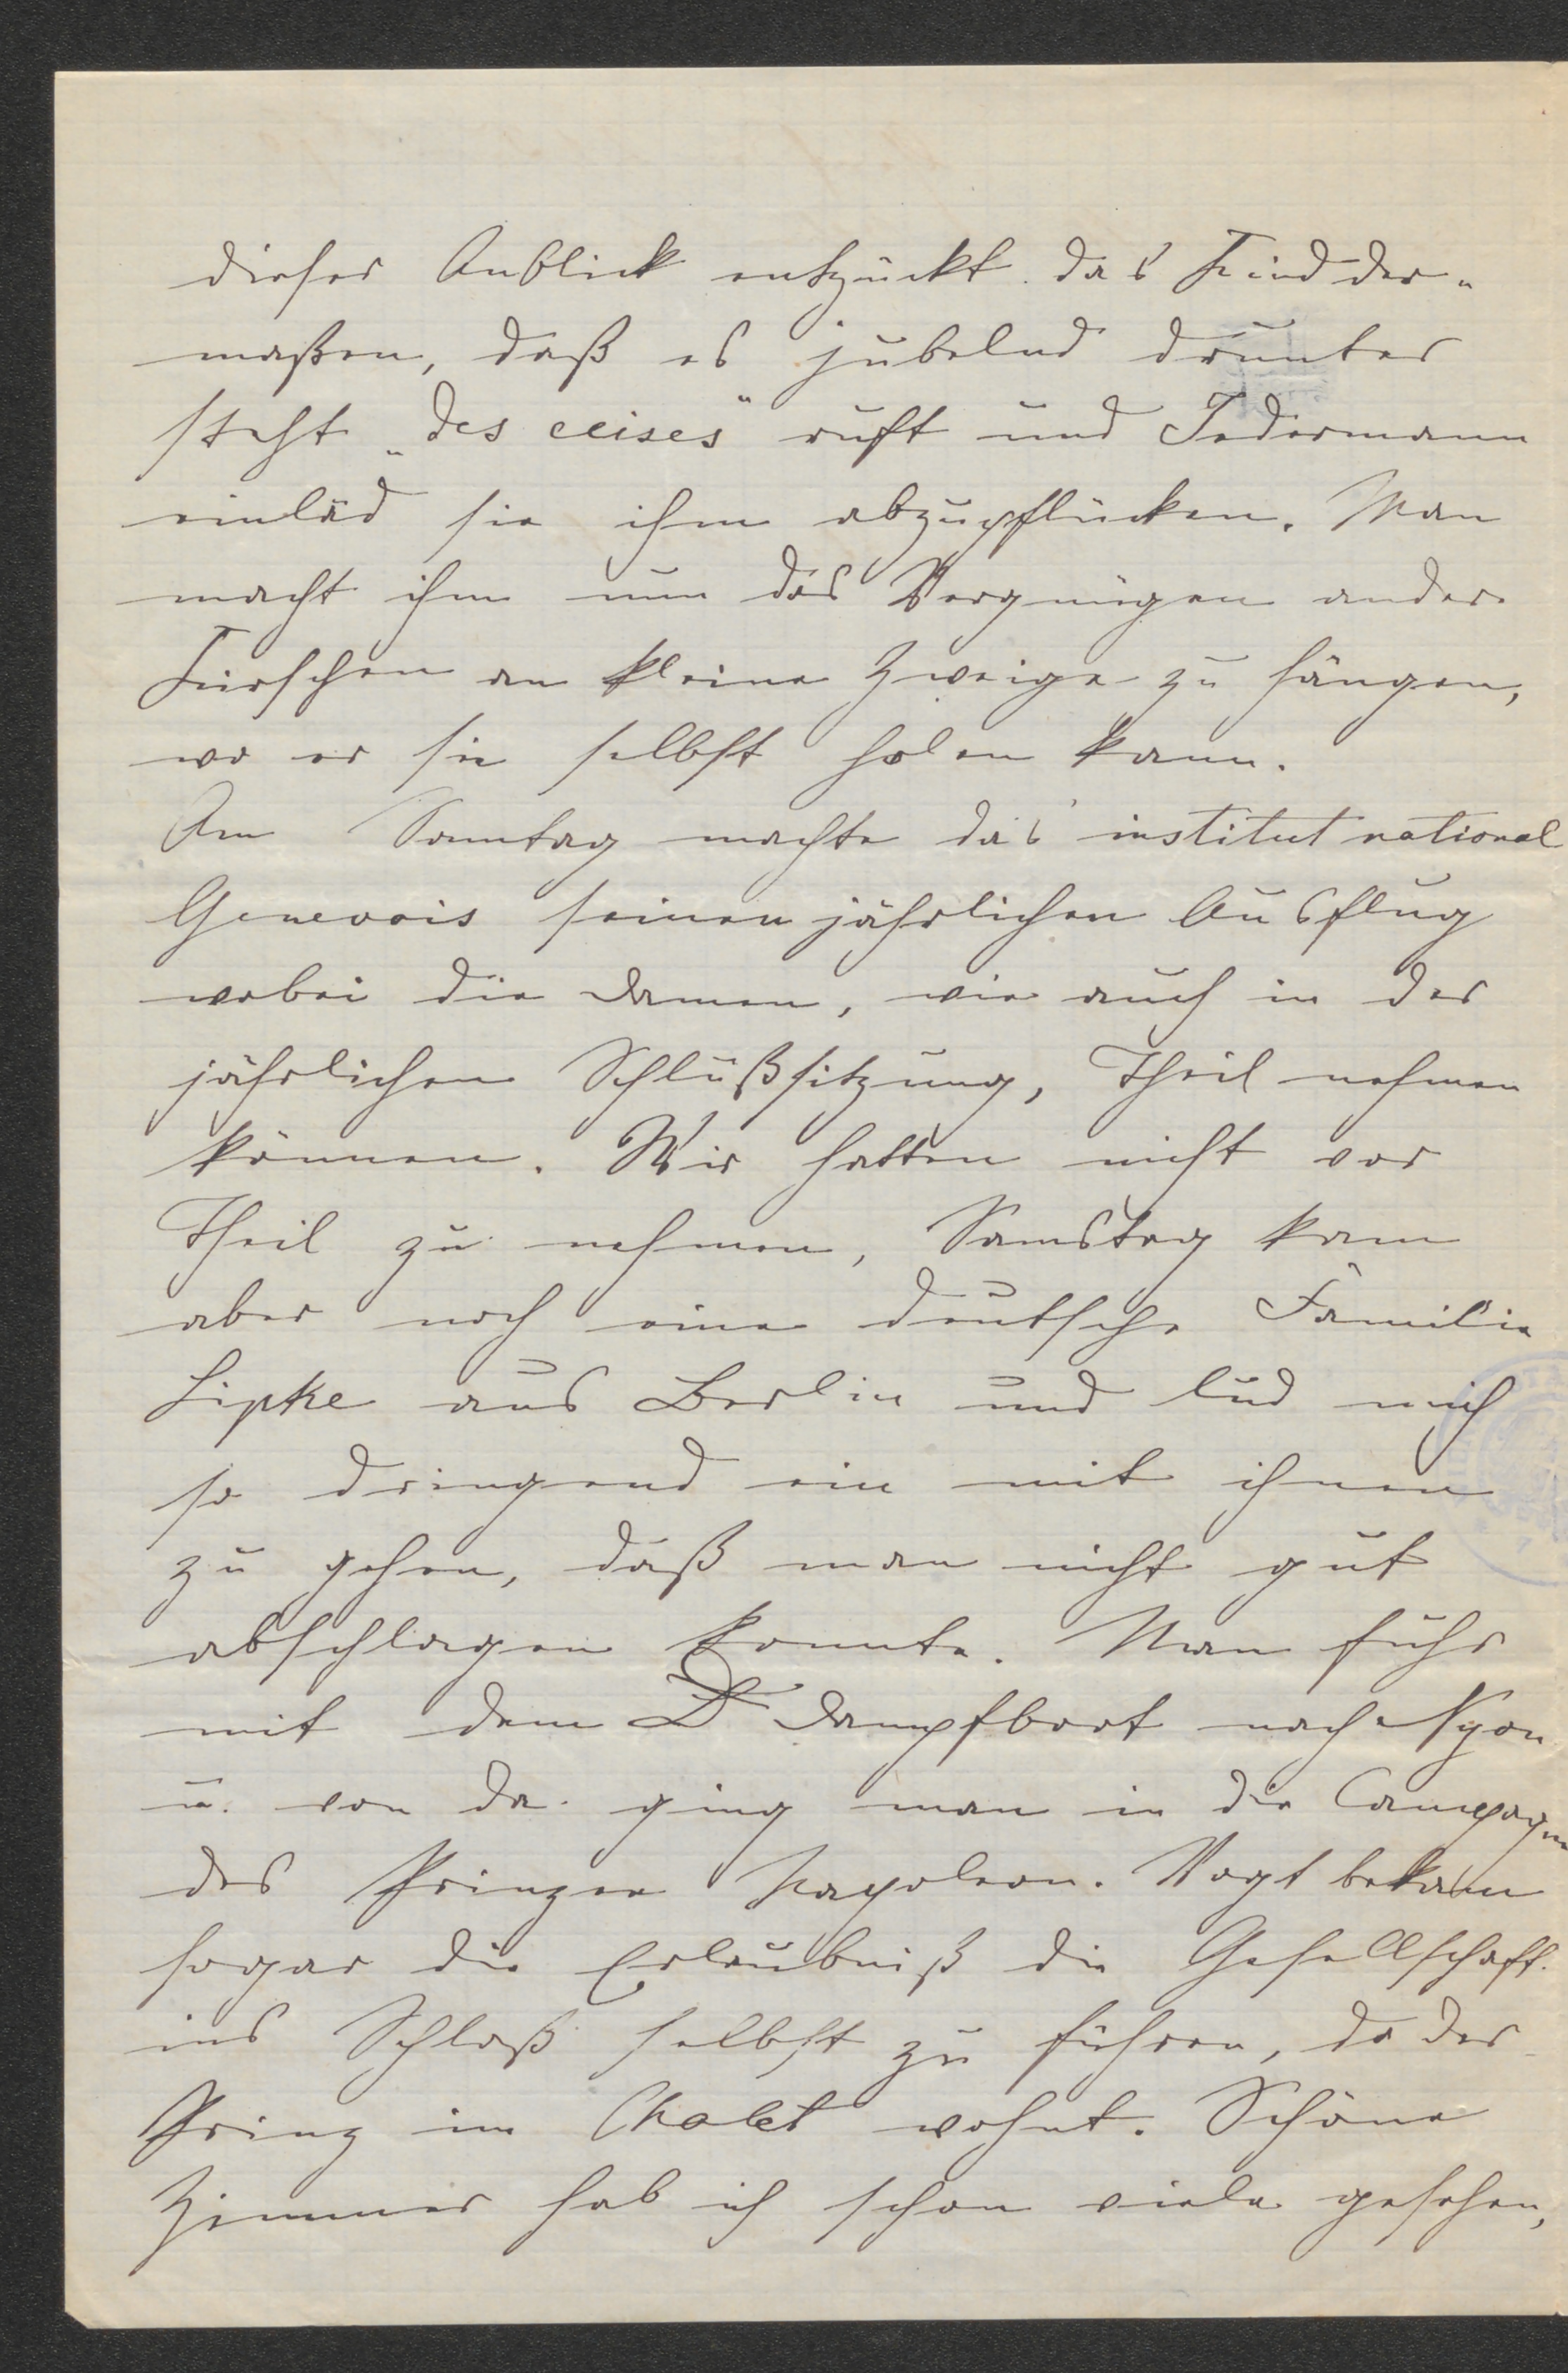 dieser Anblick entzückt das Kind der-
maßen, daß es jubelnd drunter
steht „des ceises" ruft und Jedermann
einläd sie ihm abzupflücken. Man
macht ihm nun das Vergnügen ander
Kirschen an kleine Zweige zu hängen,
wo er sie selbst holen kann.
Am Sonntag machte das institut national
Genevois seinen jährlichen Ausflug
wobei die Damen, wie auch in der
jährlichen Schlußsitzung, Theil nehmen
können. Wir hatten nicht vor
Theil zu nehmen, Samstag kam
aber noch eine deutsche Familie
Lipke aus Berlin und lud mich
so dringend ein mit ihnen
zu gehen, daß man nicht gut
abschlagen konnte. Man fuhr
mit dem D Dampfboot nach Nyon
u. von da ging man in die Campagne
des Prinzen Napoleon. Vogt bekam
sogar die Erlaubniß die Gesellschaft
ins Schloß selbst zu führen, da der
Prinz im Chalet wohnt. Schöne
Zimmer hab ich schon viele gesehen,